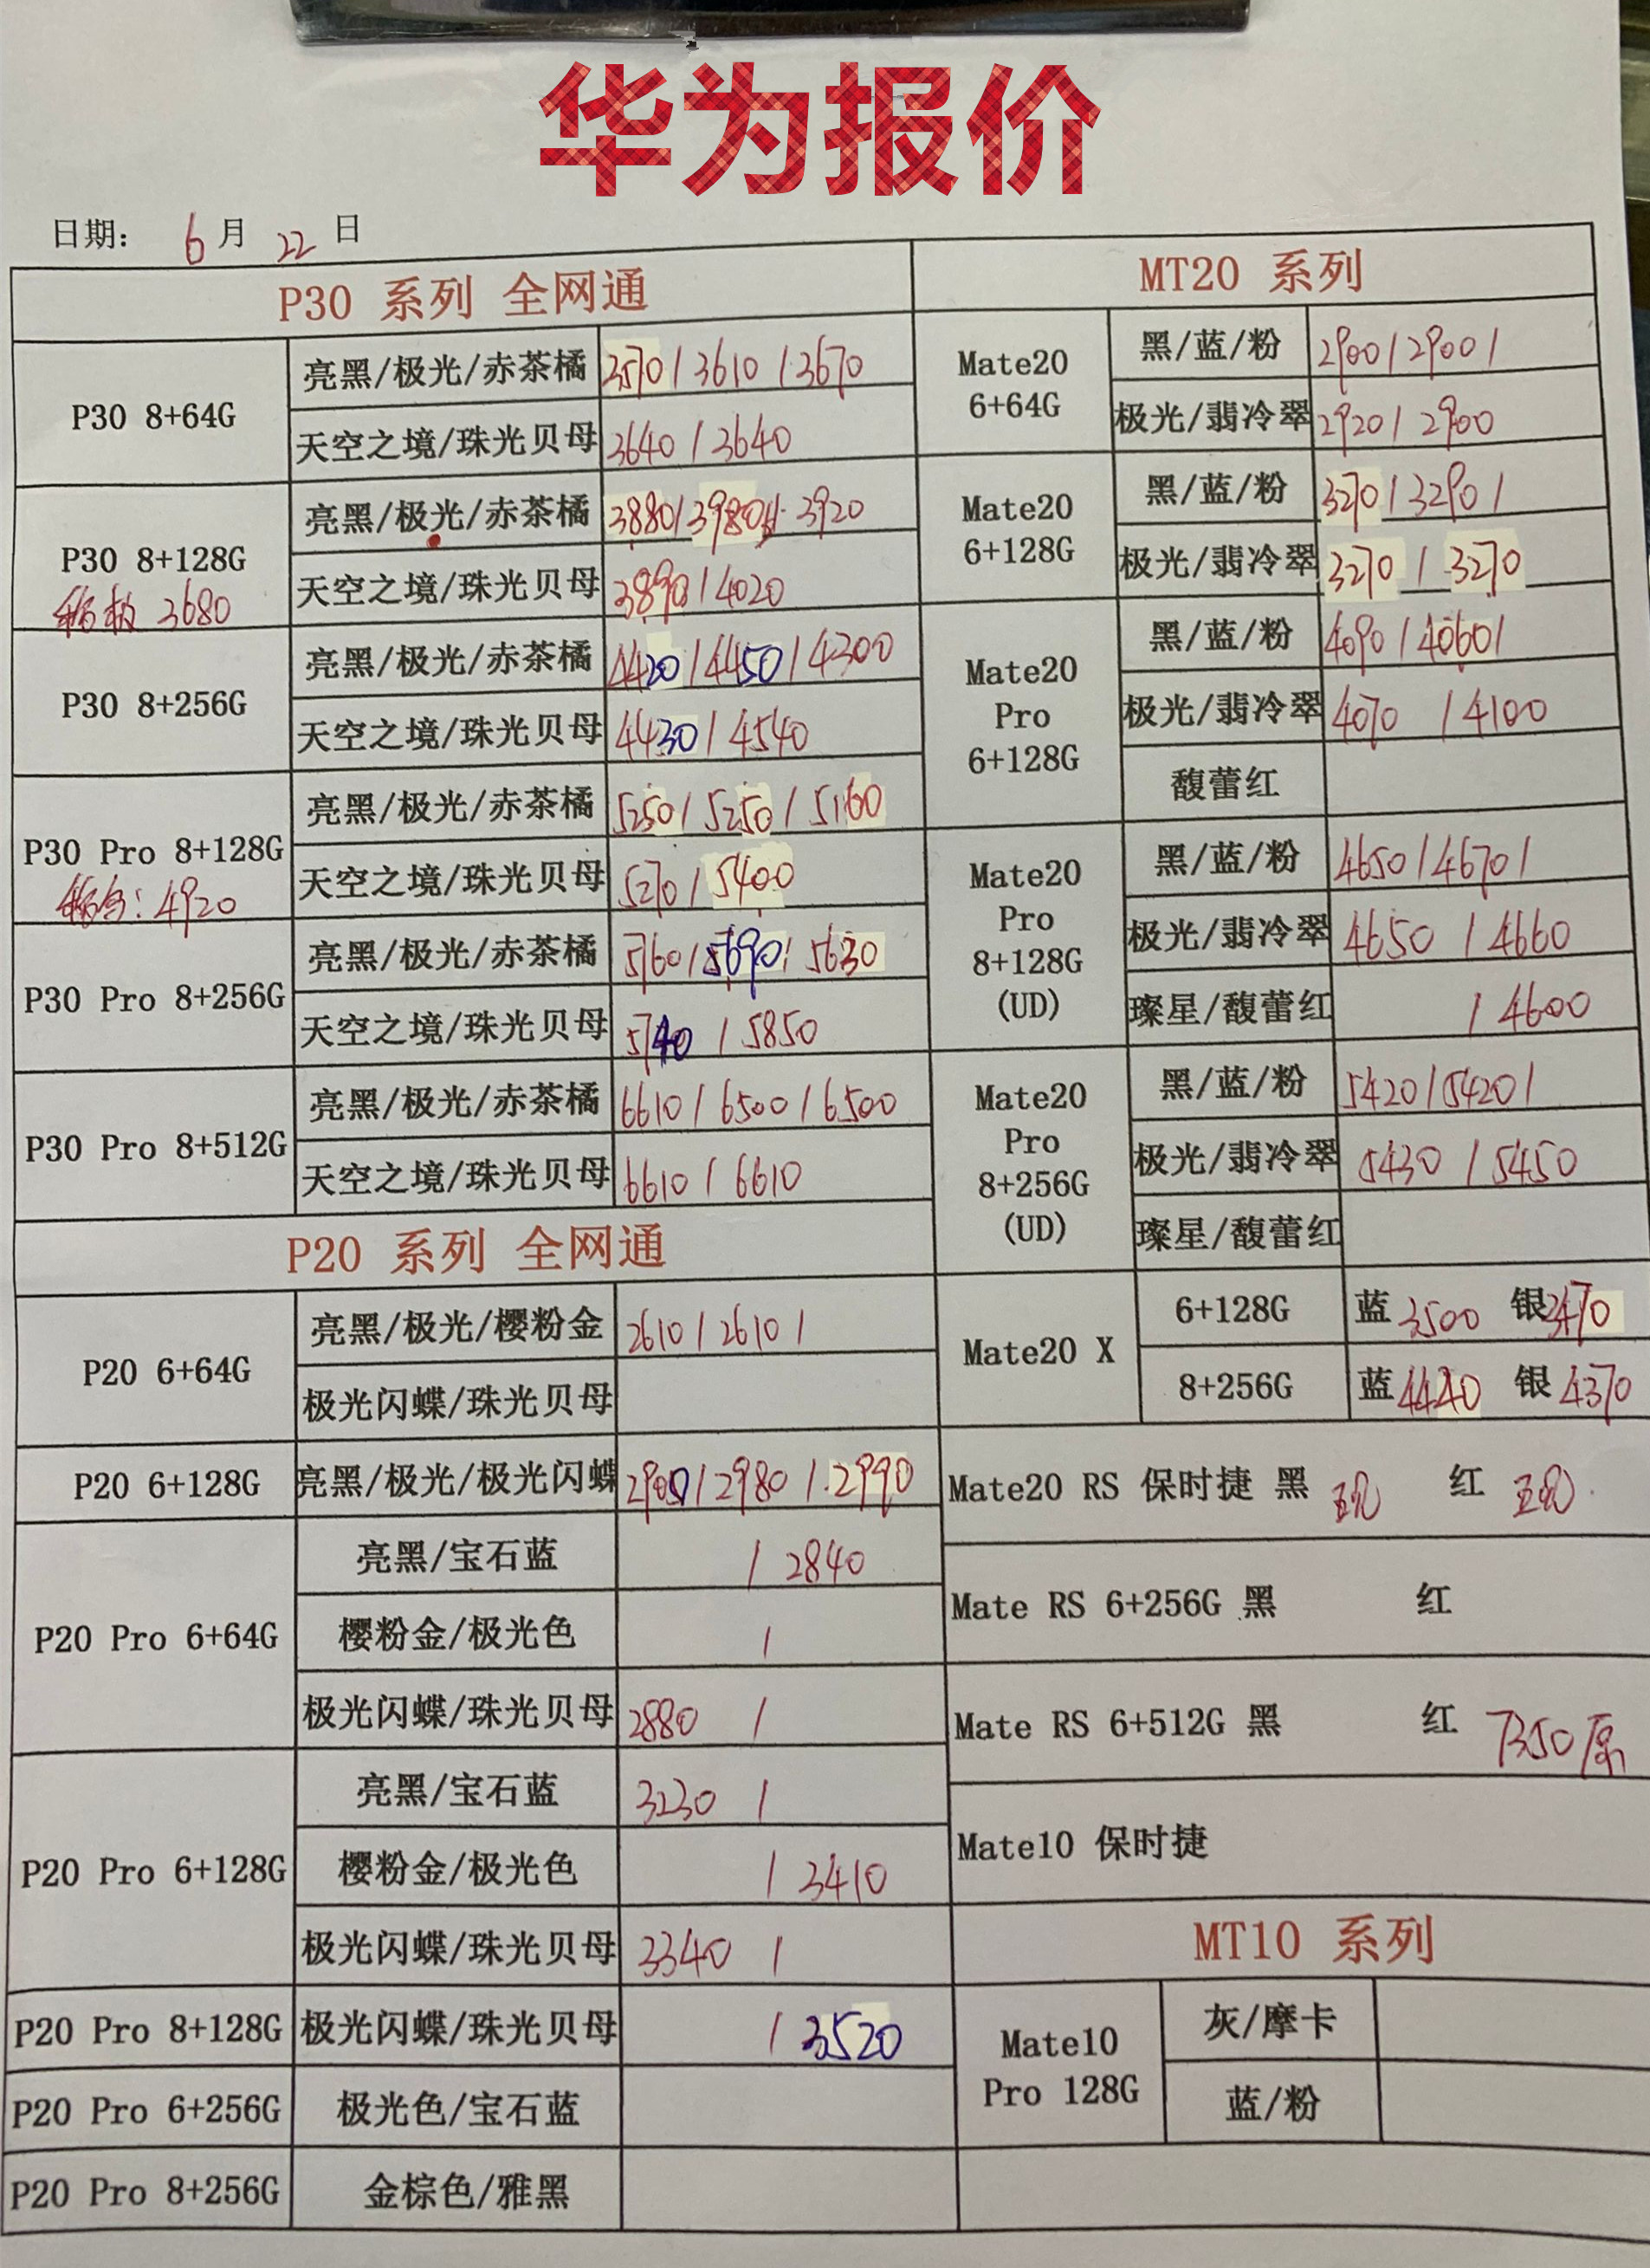 华为报价
日期： 6 月 22 日
P30 系列 全网通
P30 8+64G
亮黑/极光/赤茶橘 3570 / 3610 / 3670
天空之境/珠光贝母 3640 / 3640
P30 8+128G
3680
亮黑/极光/赤茶橘 3880 / 3980 / 3920
天空之境/珠光贝母 3890 / 4020
P30 8+256G
亮黑/极光/赤茶橘 4420 / 4450 / 4300
天空之境/珠光贝母 4430 / 4540
P30 Pro 8+128G
4920
亮黑/极光/赤茶橘 5250 / 5250 / 5160
天空之境/珠光贝母 5270 / 5400
P30 Pro 8+256G
亮黑/极光/赤茶橘 5760 / 5690 / 5630
天空之境/珠光贝母 5740 / 5850
P30 Pro 8+512G
亮黑/极光/赤茶橘 6610 / 6500 / 6500
天空之境/珠光贝母 6610 / 6610
P20 系列 全网通
P20 6+64G
亮黑/极光/樱粉金 2610 / 2610 /
极光闪蝶/珠光贝母
P20 6+128G
亮黑/极光/极光闪蝶 2900 / 2980 / 2990
P20 Pro 6+64G
亮黑/宝石蓝 / 2840
樱粉金/极光色 /
极光闪蝶/珠光贝母 2880 /
P20 Pro 6+128G
亮黑/宝石蓝 3230 /
樱粉金/极光色 / 3410
极光闪蝶/珠光贝母 3340 /
P20 Pro 8+128G
极光闪蝶/珠光贝母 / 3520
P20 Pro 6+256G
极光色/宝石蓝
P20 Pro 8+256G
金棕色/雅黑
MT20 系列
Mate20
6+64G
黑/蓝/粉 2900 / 2900 /
极光/翡冷翠 2920 / 2900
Mate20
6+128G
黑/蓝/粉 3270 / 3290 /
极光/翡冷翠 3270 / 3270
Mate20
Pro
6+128G
黑/蓝/粉 4090 / 4060 /
极光/翡冷翠 4070 / 4100
馥蕾红
Mate20
Pro
8+128G
(UD)
黑/蓝/粉 4650 / 4670 /
极光/翡冷翠 4650 / 4660
璨星/馥蕾红 / 4600
Mate20
Pro
8+256G
(UD)
黑/蓝/粉 5420 / 5420 /
极光/翡冷翠 5430 / 5450
璨星/馥蕾红
Mate20 X
6+128G 蓝 3500 银 3470
8+256G 蓝 4440 银 4370
Mate20 RS 保时捷 黑 红
Mate RS 6+256G 黑 红
Mate RS 6+512G 黑 红 7350 原
Mate10 保时捷
MT10 系列
Mate10
Pro 128G
灰/摩卡
蓝/粉